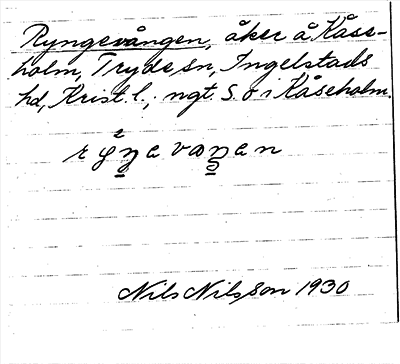 Ryngevången, åker å Kåse-
holm, Tryde sn, Ingelstads
hd, Krist. l., ngt. S. o i Kåseholm.
Nils Nilsson 1930